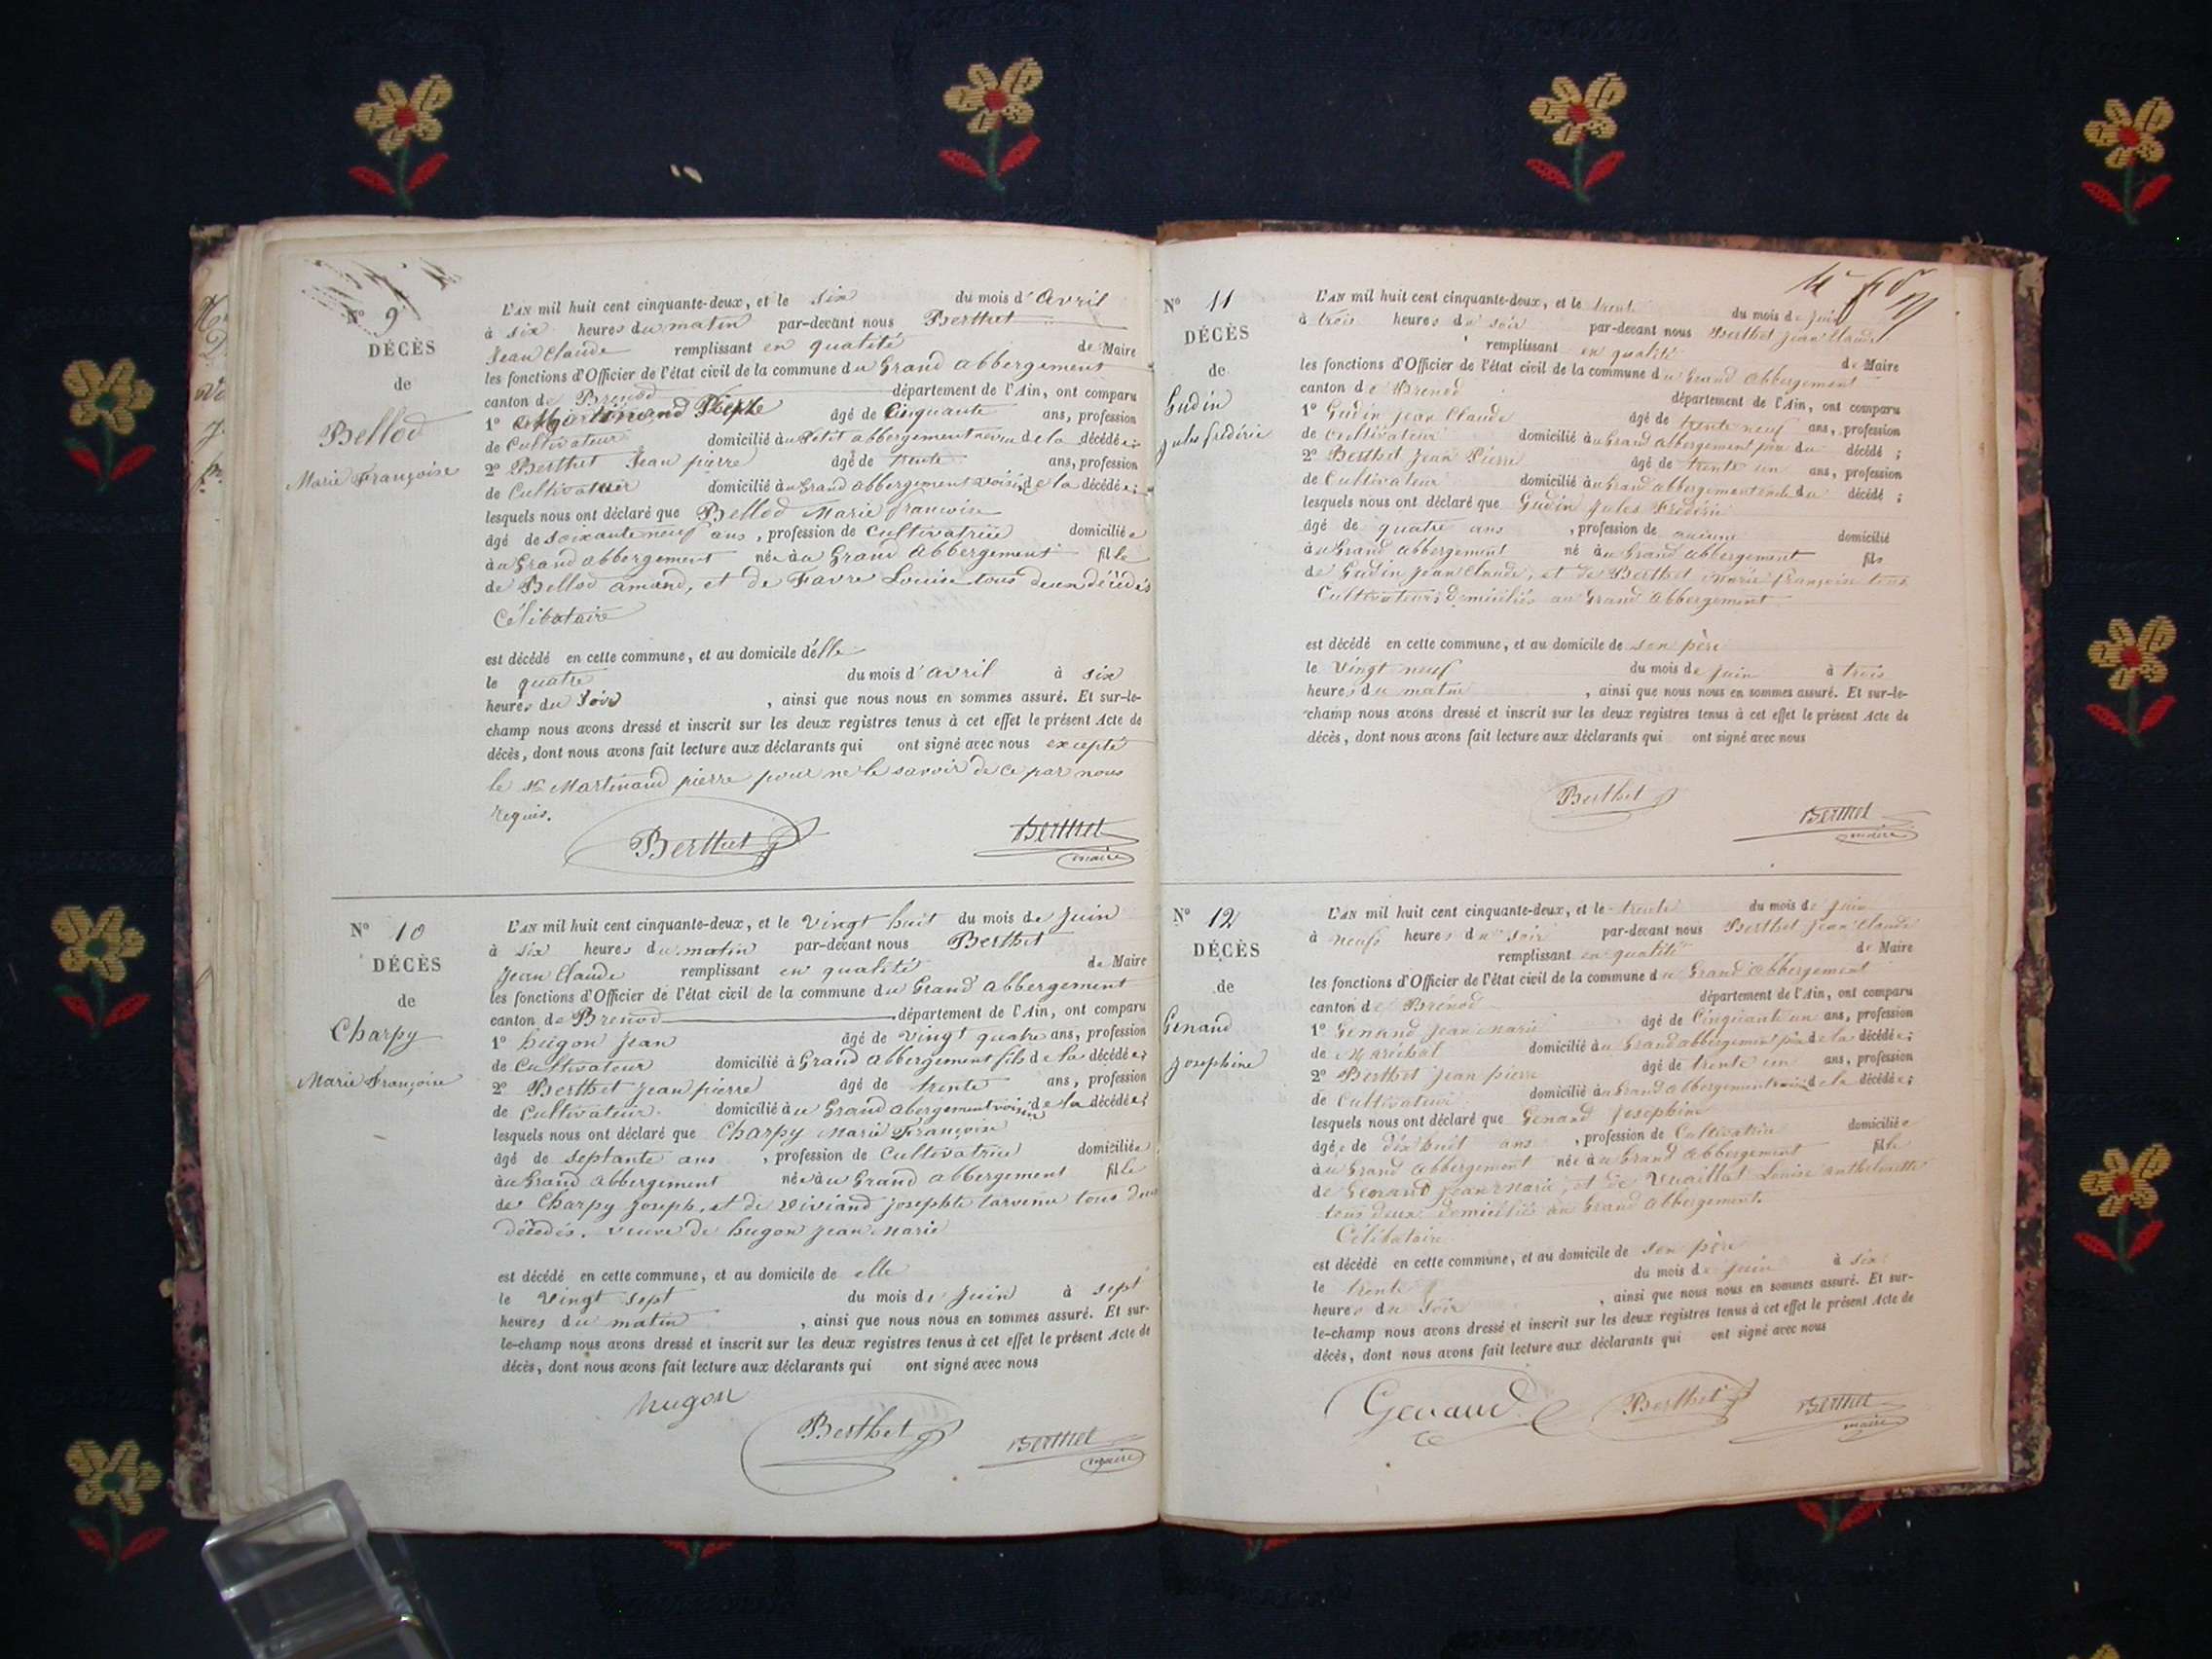 N° 9
DÉCÈS
de
Bellod
Marie Françoise
L'AN mil huit cent cinquante-deux, et le Six du mois d'Avril
à Six heures du matin par-devant nous Berthet
Jean Claude remplissant en qualité de Maire
les fonctions d'Officier de l'état civil de la commune du Grand Abbergement
canton de Brenod département de l'Ain, ont comparu
1° Martinand Pierre âgé de Cinquante ans, profession
de Cultivateur domicilié au Petit abbergement neveu de la décédée;
2° Berthet Jean pierre âgé de trente ans, profession
de Cultivateur domicilié au Grand abbergement voisin de la décédée;
lesquels nous ont déclaré que Bellod Marie francoise
âgé de Soixante neuf ans, profession de Cultivatrice domiciliée
au Grand abbergement née au Grand Abbergement fille
de Bellod amand, et de Favre Louise tous deux décédés
Célibataire
est décédé en cette commune, et au domicile d'elle
le quatre du mois d'avril à six
heures du Soir, ainsi que nous nous en sommes assuré. Et sur-le-
champ nous avons dressé et inscrit sur les deux registres tenus à cet effet le présent Acte de
décès, dont nous avons fait lecture aux déclarants qui ont signé avec nous excepté
le Martinand pierre pour ne le savoir de ce par nous
requis.
Berthet Berthet
maire
N° 10
DÉCÈS
de
Charpy
Marie Françoise
L'AN mil huit cent cinquante-deux, et le Vingt huit du mois de Juin
à Six heures du matin par-devant nous Berthet
Jean Claude remplissant en qualité de Maire
les fonctions d'Officier de l'état civil de la commune du Grand Abbergement
canton de Brenod département de l'Ain, ont comparu
1° hugon Jean âgé de vingt quatre ans, profession
de Cultivateur domicilié à Grand Abbergement fils de la décédée;
2° Berthet Jean pierre âgé de trente ans, profession
de Cultivateur domicilié au Grand abergement voisin de la décédée;
lesquels nous ont déclaré que Charpy Marie Françoise
âgé de Septante ans, profession de Cultivatrice domiciliée
au Grand abbergement née au Grand abbergement fille
de Charpy Joseph, et de Viviand josephte tous deux
décédés. veuve de hugon Jean Marie
est décédé en cette commune, et au domicile de elle
le Vingt Sept du mois de Juin à Sept
heures du matin, ainsi que nous nous en sommes assuré. Et sur-
le-champ nous avons dressé et inscrit sur les deux registres tenus à cet effet le présent Acte de
décès, dont nous avons fait lecture aux déclarants qui ont signé avec nous
hugon
Berthet Berthet
maire
N° 11
DÉCÈS
de
Gudin
Jules frédéric
L'AN mil huit cent cinquante-deux, et le trente du mois de Juin
à trois heures du soir par-devant nous Berthet Jean Claude
remplissant en qualité de Maire
les fonctions d'Officier de l'état civil de la commune du Grand Abbergement
canton de Brenod département de l'Ain, ont comparu
1° Gudin Jean Claude âgé de trente neuf ans, profession
de Cultivateur domicilié au Grand abbergement père du décédé;
2° Berthet Jean Pierre âgé de trente un ans, profession
de Cultivateur domicilié au Grand abbergement oncle du décédé;
lesquels nous ont déclaré que Gudin Jules Frédéric
âgé de quatre ans, profession de aucune domicilié
au Grand Abbergement né au Grand Abbergement fils
de Gudin Jean Claude, et de Berthet Marie françoise tous
Cultivateurs domiciliés au Grand Abbergement
est décédé en cette commune, et au domicile de son père
le vingt neuf du mois de Juin à trois
heures du matin, ainsi que nous nous en sommes assuré. Et sur-le-
champ nous avons dressé et inscrit sur les deux registres tenus à cet effet le présent Acte de
décès, dont nous avons fait lecture aux déclarants qui ont signé avec nous
Berthet Berthet
maire
N° 12
DÉCÈS
de
Genand
Josephine
L'AN mil huit cent cinquante-deux, et le trente du mois de Juin
à neufs heures du soir par-devant nous Berthet Jean Claude
remplissant en qualité de Maire
les fonctions d'Officier de l'état civil de la commune du Grand Abbergement
canton de Brénod département de l'Ain, ont comparu
1° Genand Jean Marie âgé de Cinquante un ans, profession
de Maréchal domicilié au Grand abbergement père de la décédée;
2° Berthet Jean pierre âgé de trente un ans, profession
de Cultivateur domicilié au Grand abbergement voisin de la décédée;
lesquels nous ont déclaré que Genand Josephine
âgée de dix huit ans, profession de Cultivatrice domiciliée
au Grand Abbergement née au Grand Abbergement fille
de Genand Jean Marie, et de Vuaillat Louise anthelmette
tous deux domiciliés au Grand Abbergement.
Célibataire
est décédé en cette commune, et au domicile de son père
le trente du mois de Juin à six
heures du Soir, ainsi que nous nous en sommes assuré. Et sur-
le-champ nous avons dressé et inscrit sur les deux registres tenus à cet effet le présent Acte de
décès, dont nous avons fait lecture aux déclarants qui ont signé avec nous
Genand Berthet Berthet
maire